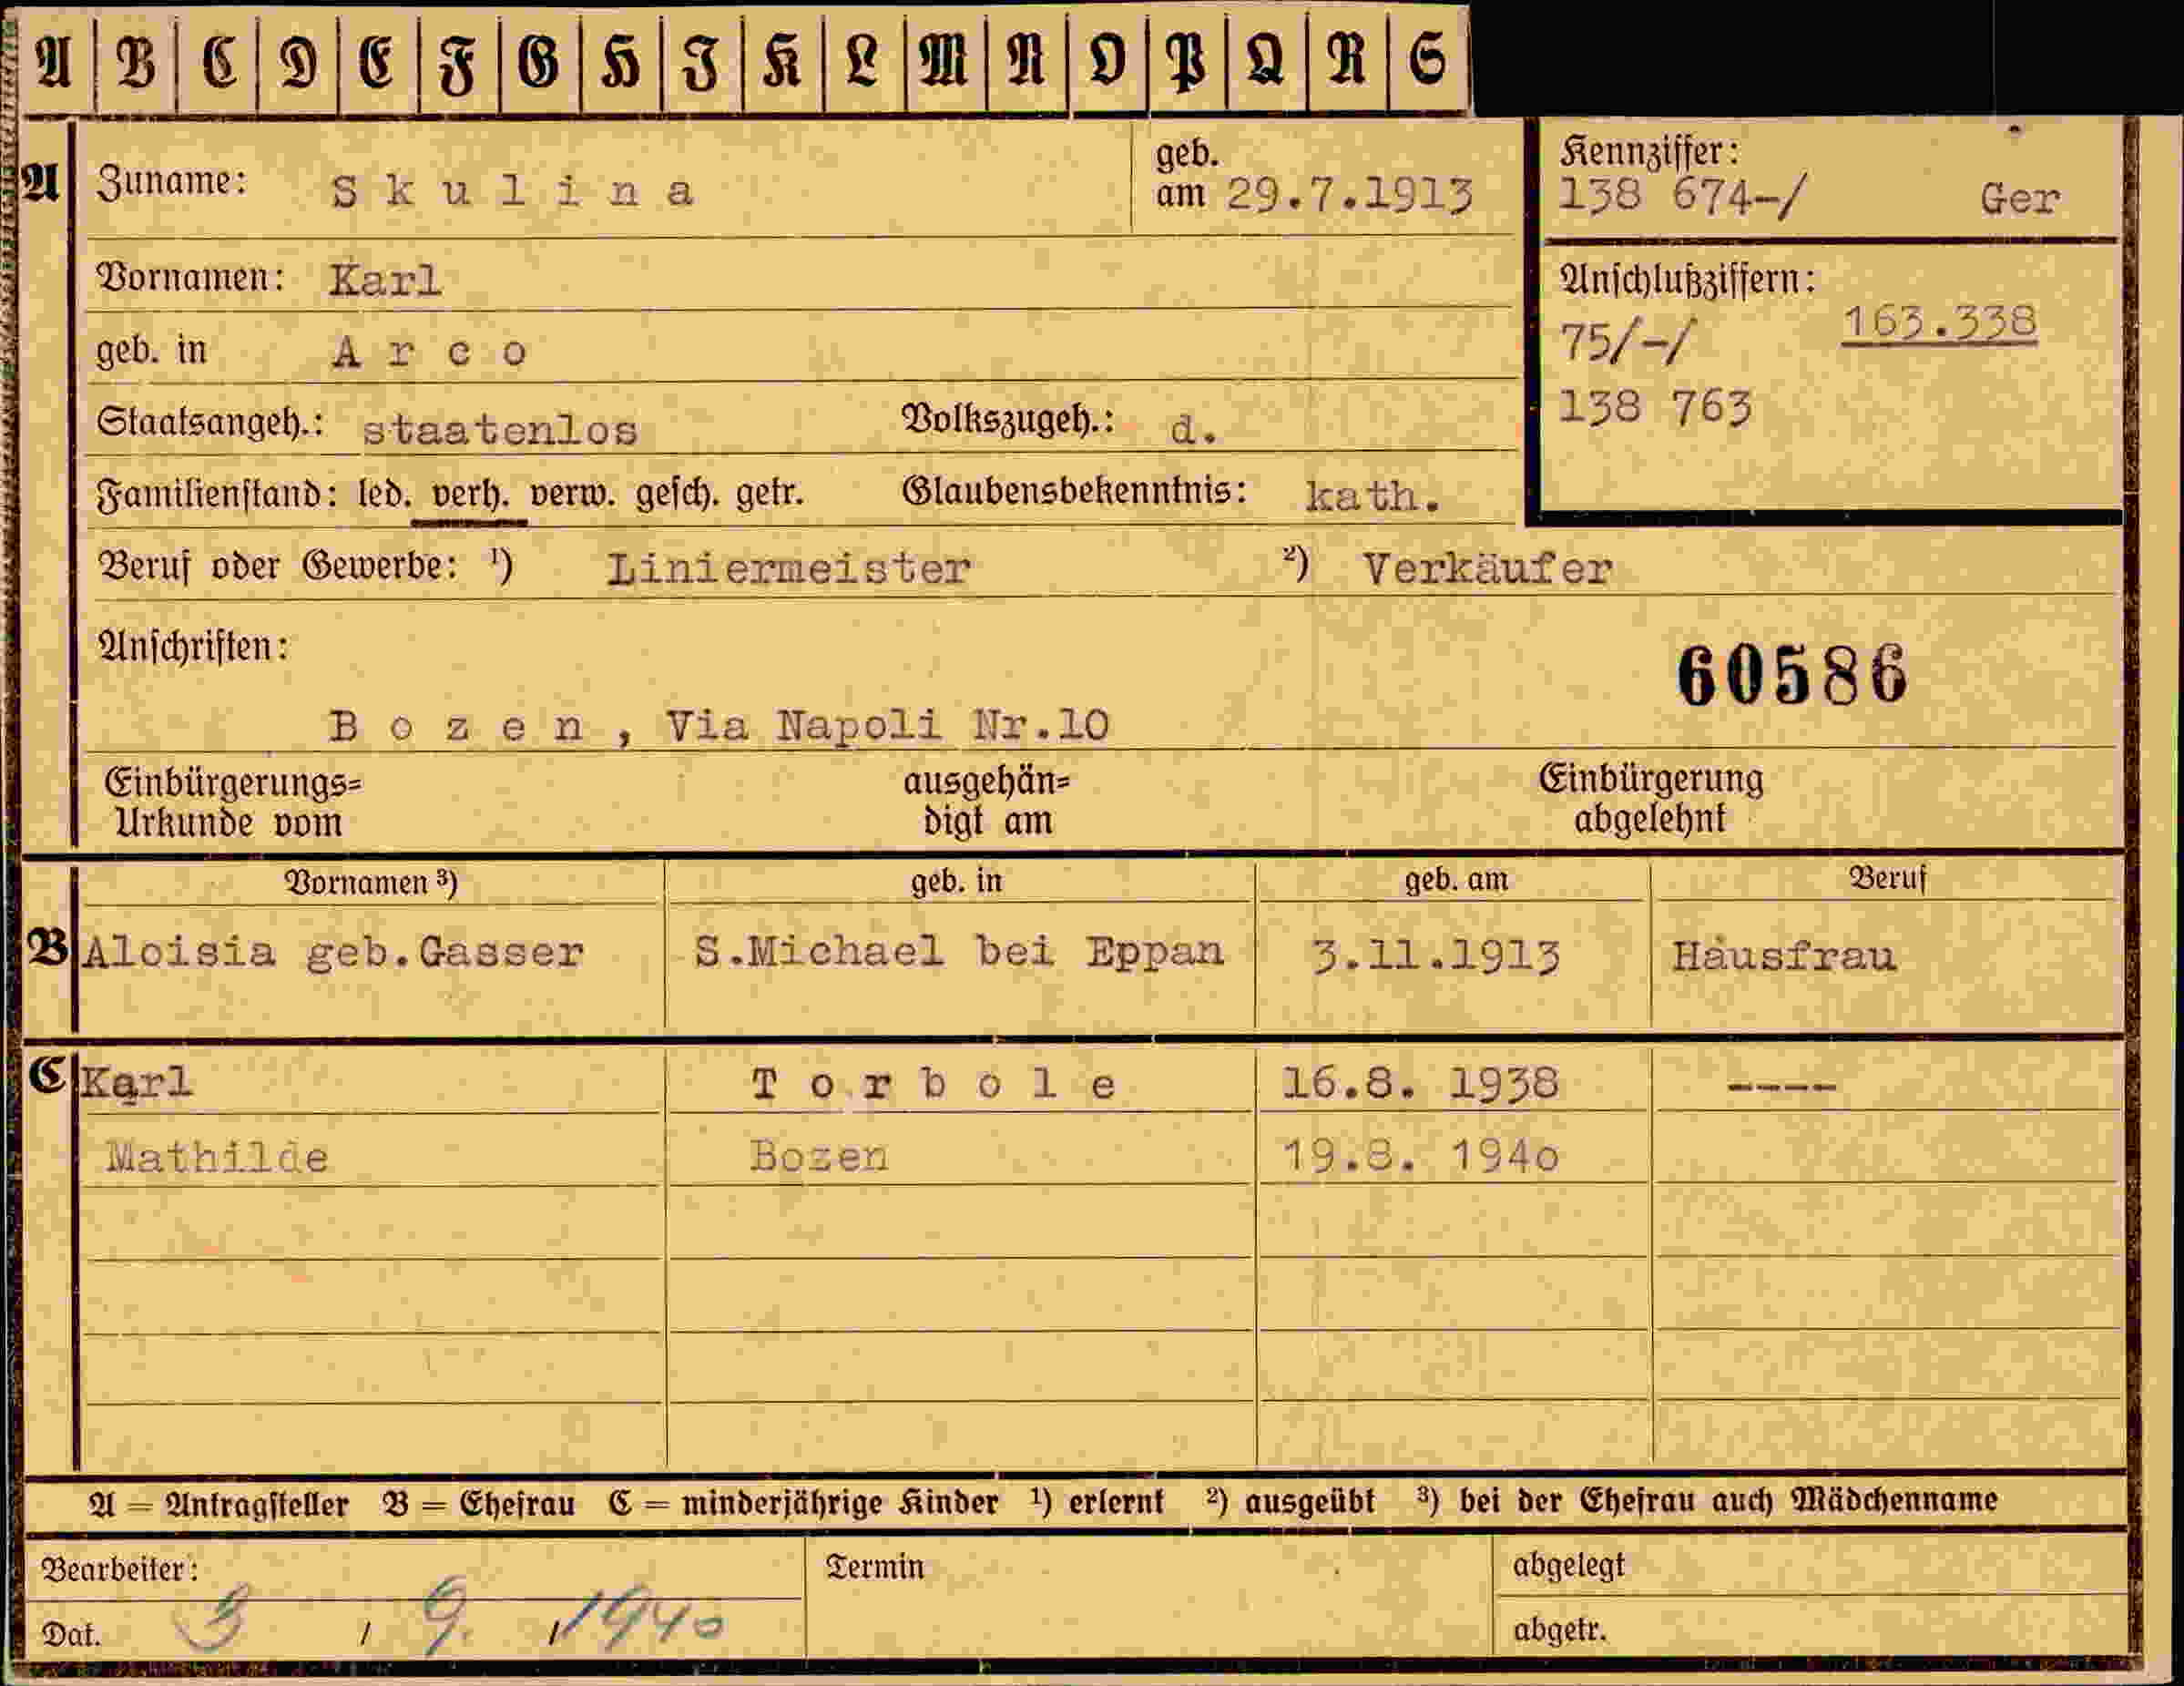 A B C D E F G H I K L M N O P Q R S
A Zuname: Skulina geb. am 29.7.1913
Kennziffer:
138 674-/ Ger
Vornamen: Karl
Anschlußziffern:
75/-/ 163.338
138 763
geb. in Arco
Staatsangeh.: staatenlos Volkszugeh.: d.
Familienstand: led. verh. verw. gesch. getr. Glaubensbekenntnis: kath.
Beruf oder Gewerbe: ¹) Liniermeister ²) Verkäufer
Anschriften:
60586
Bozen, Via Napoli Nr.10
Einbürgerungs= ausgehän= Einbürgerung
Urkunde vom digt am abgelehnt
Vornamen ³) geb. in geb. am Beruf
B Aloisia geb.Gasser S.Michael bei Eppan 3.11.1913 Hausfrau
C Karl Torbole 16.8. 1938 ----
Mathilde Bozen 19.8. 1940
A = Antragsteller B = Ehefrau C = minderjährige Kinder ¹) erlernt ²) ausgeübt ³) bei der Ehefrau auch Mädchenname
Bearbeiter: Termin abgelegt
Dat. 3 / 9. / 1940 abgetr.